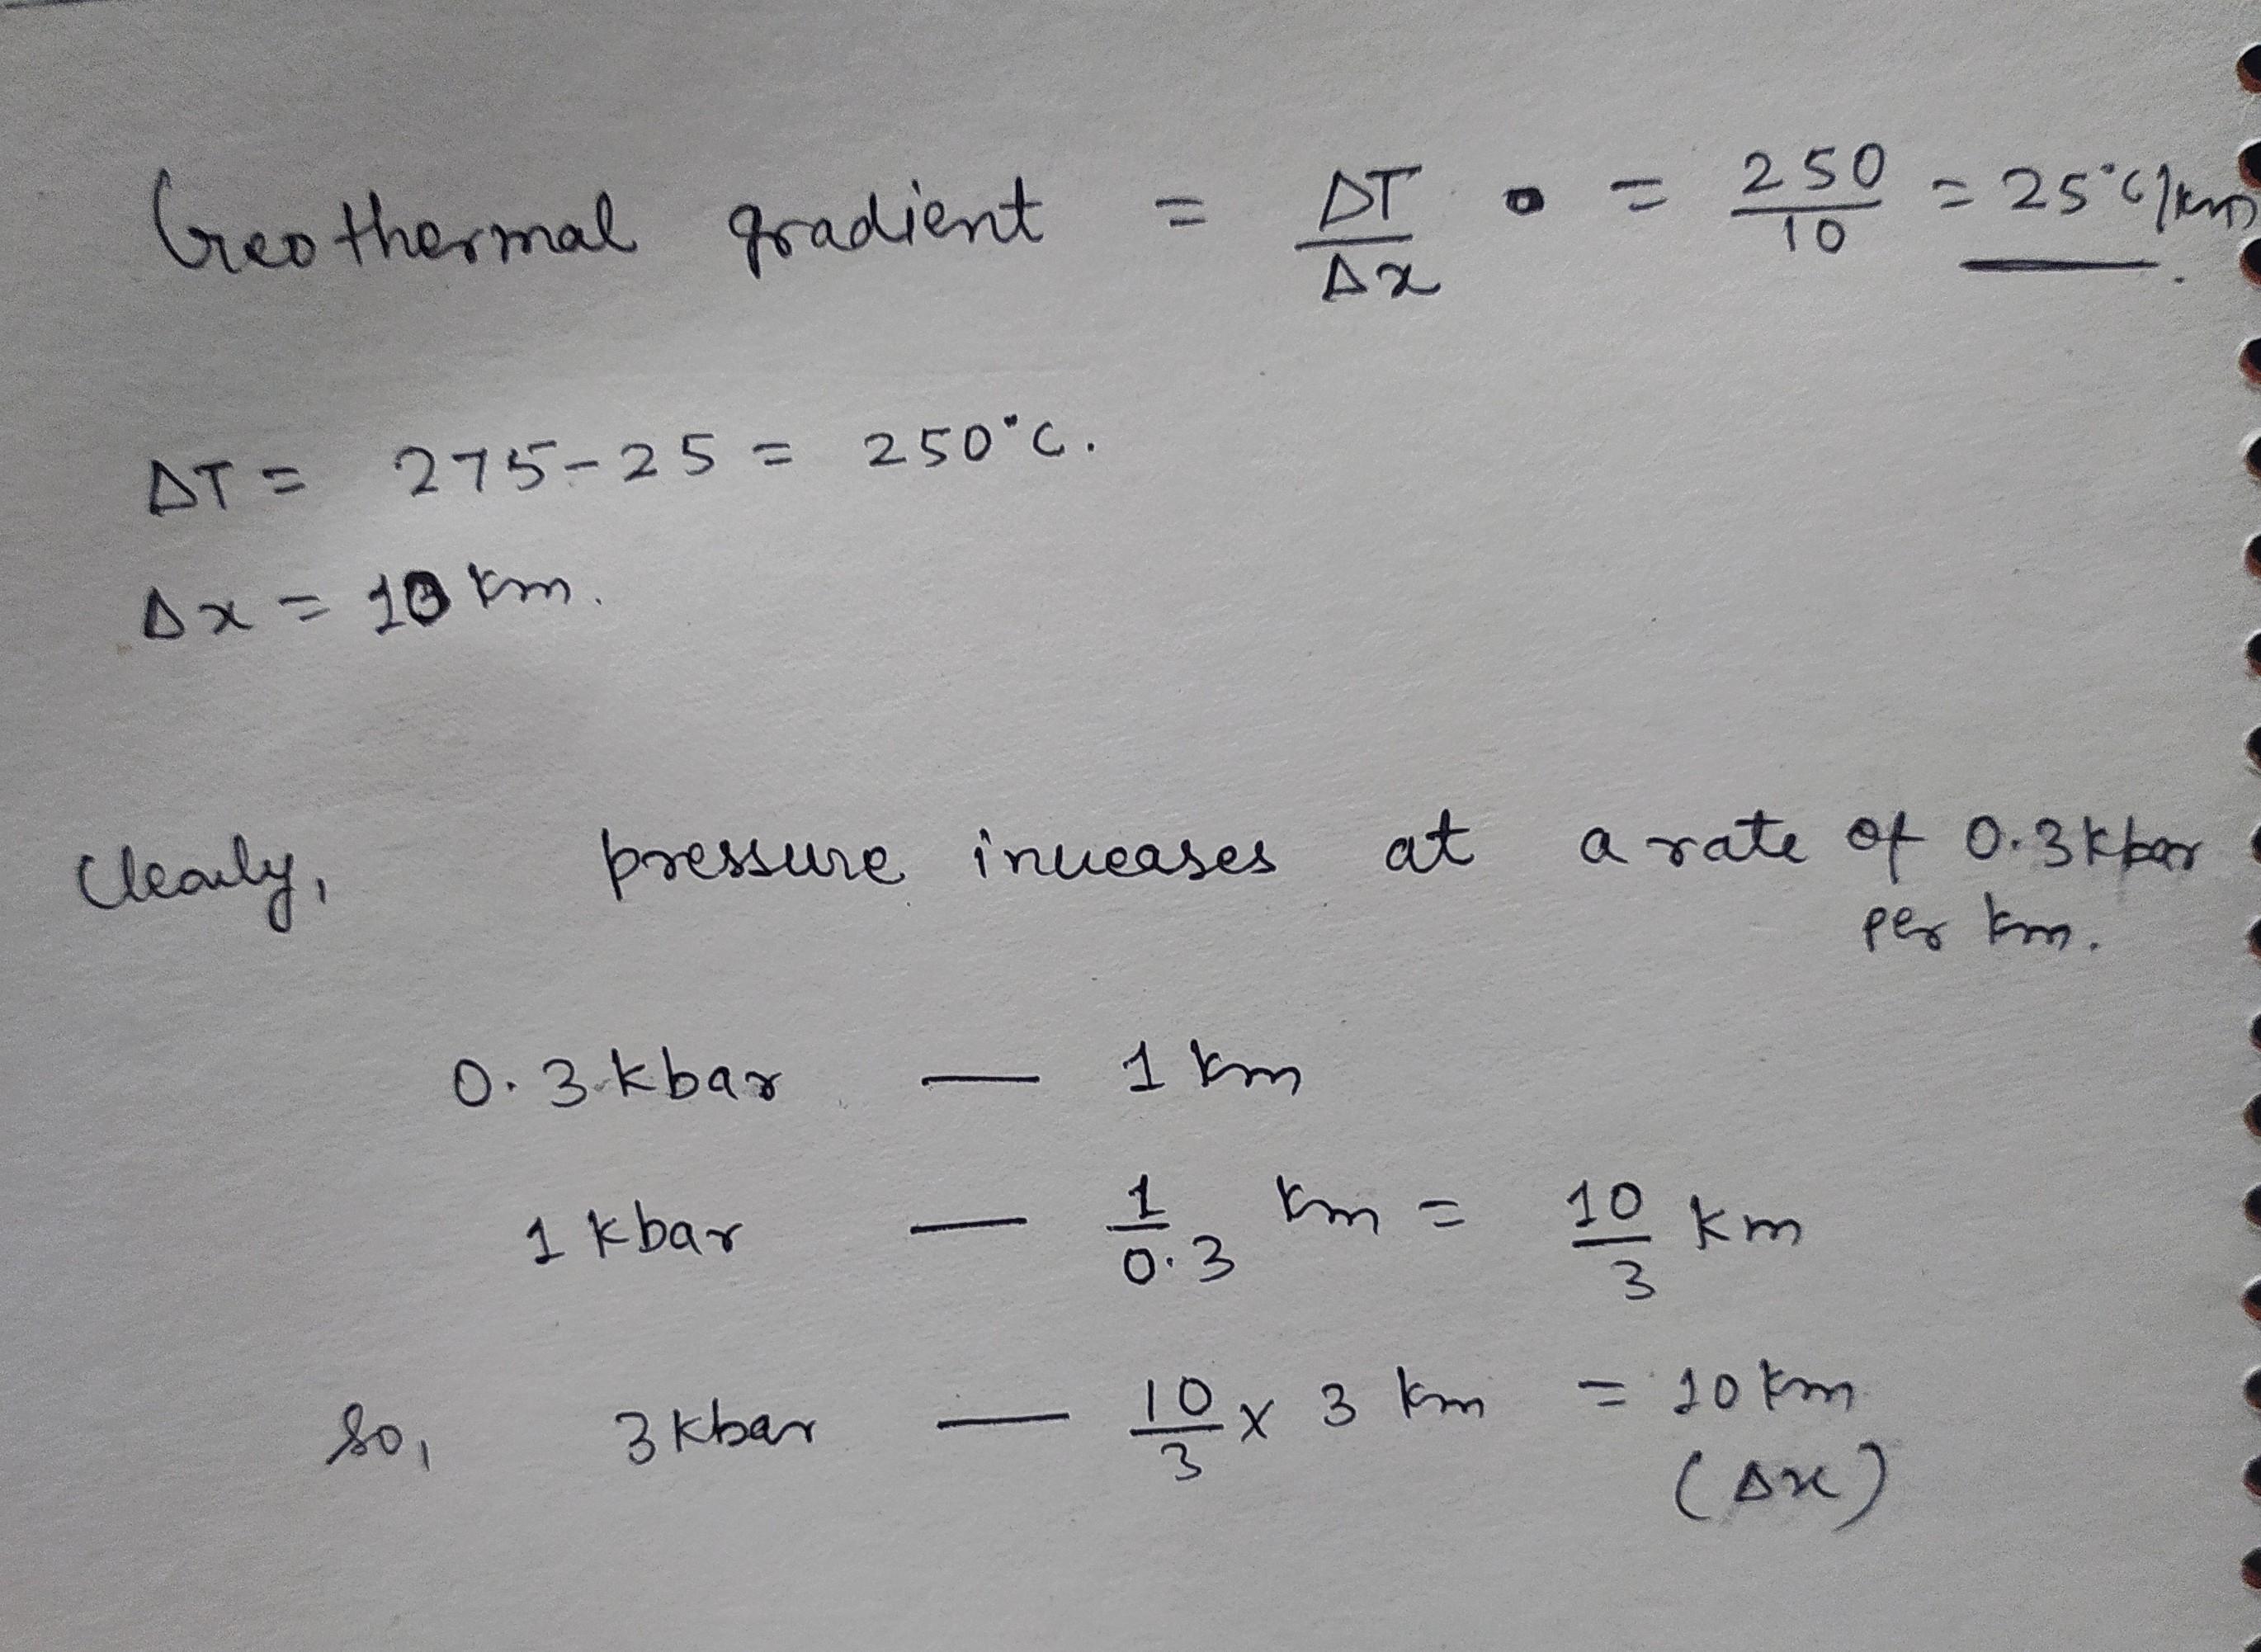 Geothermal gradient = ΔT/Δx = 250/10 = 25°C/km.
ΔT = 275-25 = 250°C.
Δx = 10 km.
Clearly, pressure increases at a rate of 0.3 kbar
per km.
0.3 kbar — 1 km
1 kbar — 1/0.3 km = 10/3 km
So, 3 kbar — 10/3 x 3 km = 10 km
(Δx)